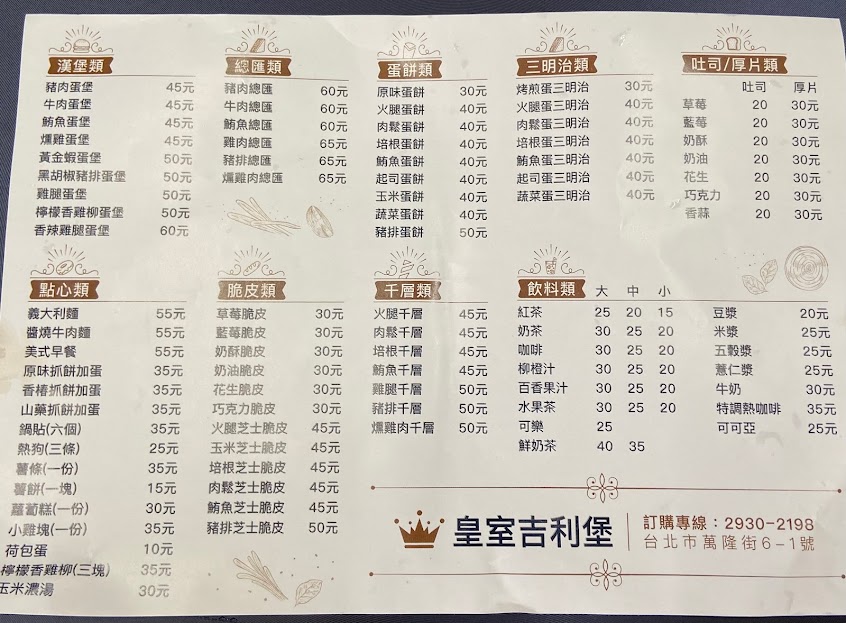 漢堡類
豬肉蛋堡 45元
牛肉蛋堡 45元
鮪魚蛋堡 45元
燻雞蛋堡 45元
黃金蝦蛋堡 50元
黑胡椒豬排蛋堡 50元
雞腿蛋堡 50元
檸檬香雞柳蛋堡 50元
香辣雞腿蛋堡 60元
總匯類
豬肉總匯 60元
牛肉總匯 60元
鮪魚總匯 60元
雞肉總匯 65元
豬排總匯 65元
燻雞肉總匯 65元
蛋餅類
原味蛋餅 30元
火腿蛋餅 40元
肉鬆蛋餅 40元
培根蛋餅 40元
鮪魚蛋餅 40元
起司蛋餅 40元
玉米蛋餅 40元
蔬菜蛋餅 40元
豬排蛋餅 50元
三明治類
烤煎蛋三明治 30元
火腿蛋三明治 40元
肉鬆蛋三明治 40元
培根蛋三明治 40元
鮪魚蛋三明治 40元
起司蛋三明治 40元
蔬菜蛋三明治 40元
吐司/厚片類
吐司 厚片
草莓 20 30元
藍莓 20 30元
奶酥 20 30元
奶油 20 30元
花生 20 30元
巧克力 20 30元
香蒜 20 30元
點心類
義大利麵 55元
醬燒牛肉麵 55元
美式早餐 55元
原味抓餅加蛋 35元
香椿抓餅加蛋 35元
山藥抓餅加蛋 35元
鍋貼(六個) 35元
熱狗(三條) 25元
薯條(一份) 35元
薯餅(一塊) 15元
蘿蔔糕(一份) 30元
小雞塊(一份) 35元
荷包蛋 10元
檸檬香雞柳(三塊) 35元
玉米濃湯 30元
脆皮類
草莓脆皮 30元
藍莓脆皮 30元
奶酥脆皮 30元
奶油脆皮 30元
花生脆皮 30元
巧克力脆皮 30元
火腿芝士脆皮 45元
玉米芝士脆皮 45元
培根芝士脆皮 45元
肉鬆芝士脆皮 45元
鮪魚芝士脆皮 45元
豬排芝士脆皮 50元
千層類
火腿千層 45元
肉鬆千層 45元
培根千層 45元
鮪魚千層 45元
雞腿千層 50元
豬排千層 50元
燻雞肉千層 50元
飲料類 大 中 小
紅茶 25 20 15
奶茶 30 25 20
咖啡 30 25 20
柳橙汁 30 25 20
百香果汁 30 25 20
水果茶 30 25 20
可樂 25
鮮奶茶 40 35
豆漿 20元
米漿 25元
五穀漿 25元
薏仁漿 25元
牛奶 30元
特調熱咖啡 35元
可可亞 25元
皇室吉利堡
訂購專線：2930-2198
台北市萬隆街6-1號